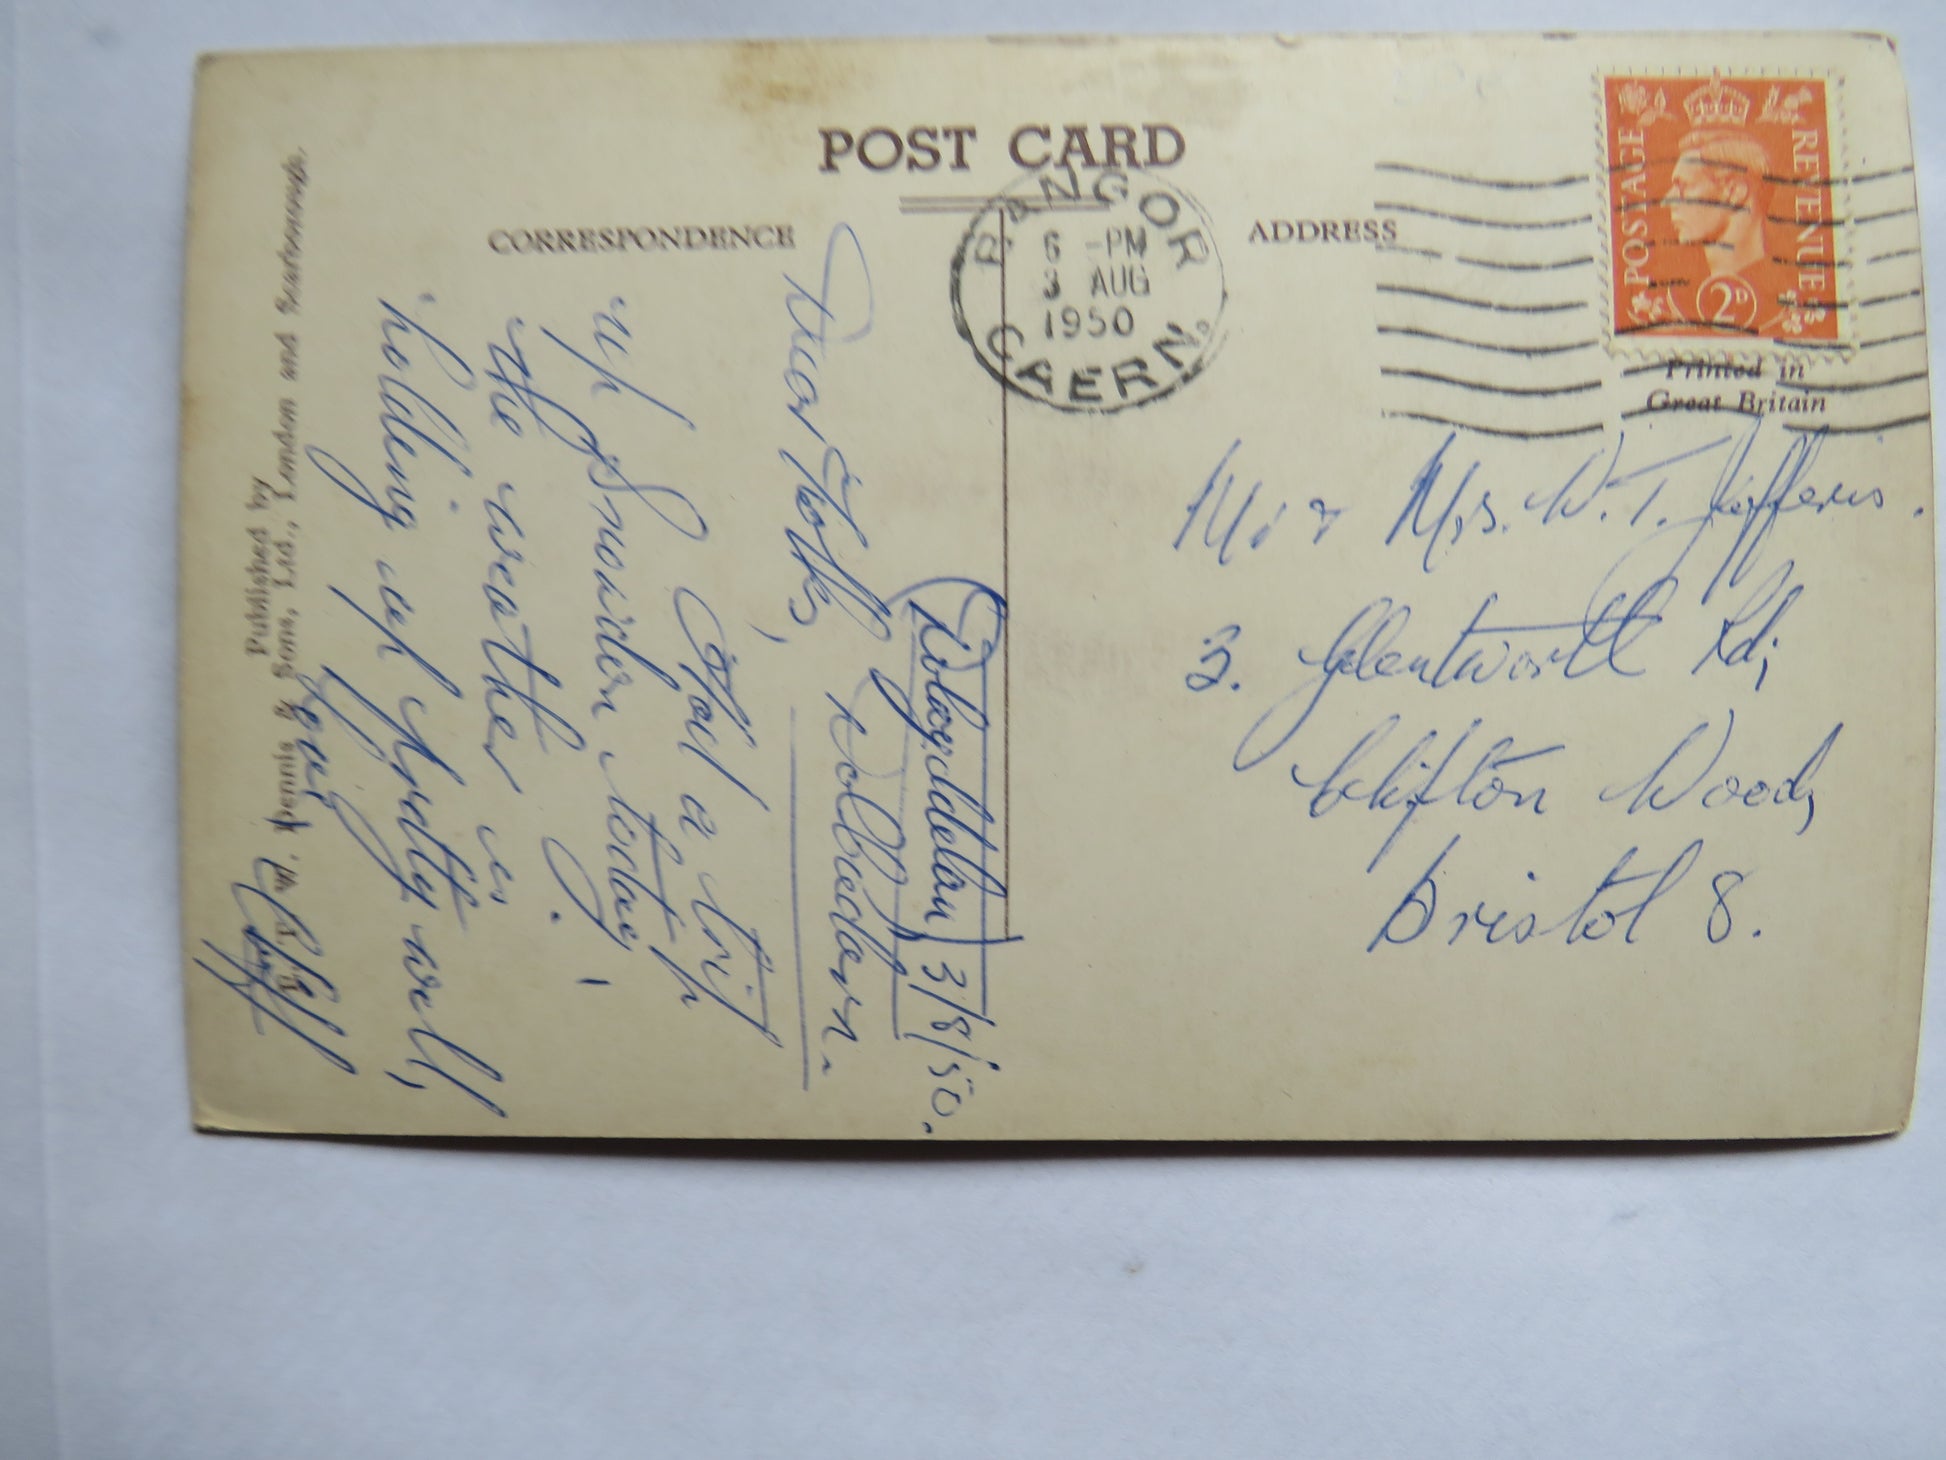 POST CARD
CORRESPONDENCE
ADDRESS
BANGOR
6 - PM
3 AUG
1950
CAERN.
POSTAGE
REVENUE
2D
Printed in
Great Britain
Mr & Mrs. W. T. Jefferis.
3. Glentworth Rd;
Clifton Wood,
Bristol 8.
Dolwyddelan 3/8/50.
Dear Folks,
Had a trip
up Snowdon today,
the weather is
holding up pretty well,
Love
Cliff
Published by
E. T. W. Dennis & Sons, Ltd., London and Scarborough.